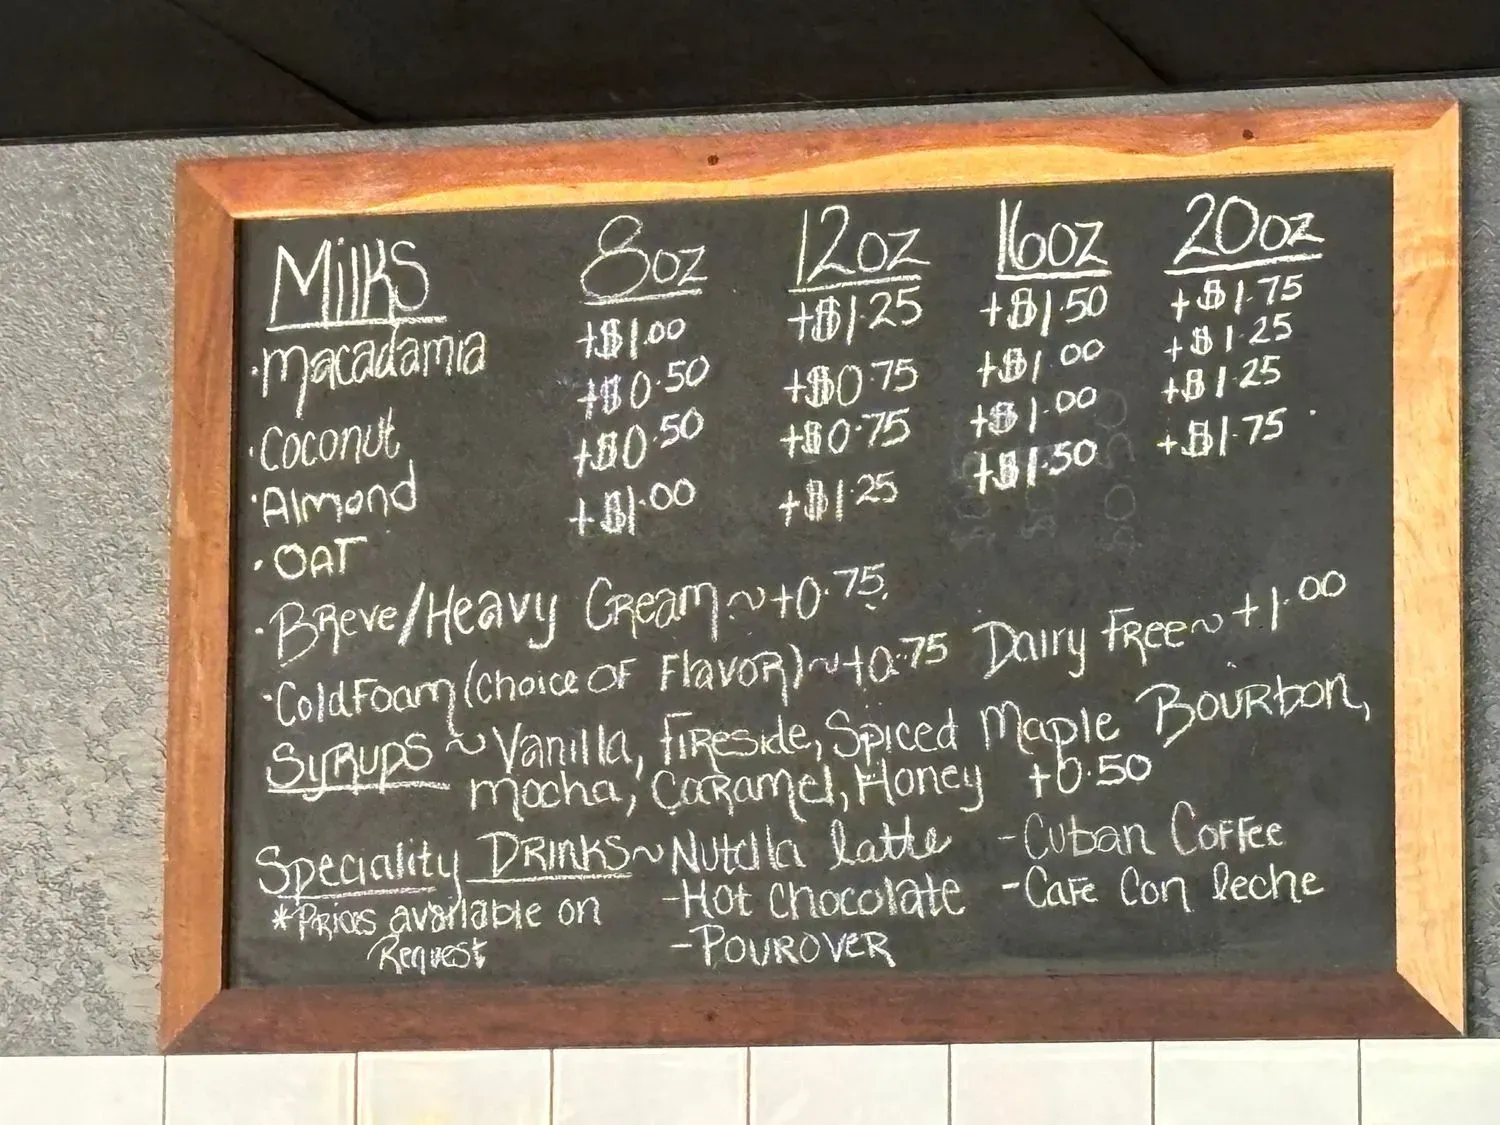 Milks 8oz 12oz 16oz 20oz
·Macadamia +$1.00 +$1.25 +$1.50 +$1.75
·Coconut +$0.50 +$0.75 +$1.00 +$1.25
·Almond +$0.50 +$0.75 +$1.00 +$1.25
·OAT +$1.00 +$1.25 +$1.50 +$1.75
·Breve/Heavy Cream~+0.75
·Cold Foam (Choice OF Flavor)~+0.75 Dairy Free~+1.00
Syrups~Vanilla, Fireside, Spiced Maple Bourbon,
mocha, Caramel, Honey +0.50
Speciality Drinks~Nutella latte -Cuban Coffee
*Prices available on -Hot Chocolate -Cafe Con leche
Request -Pourover